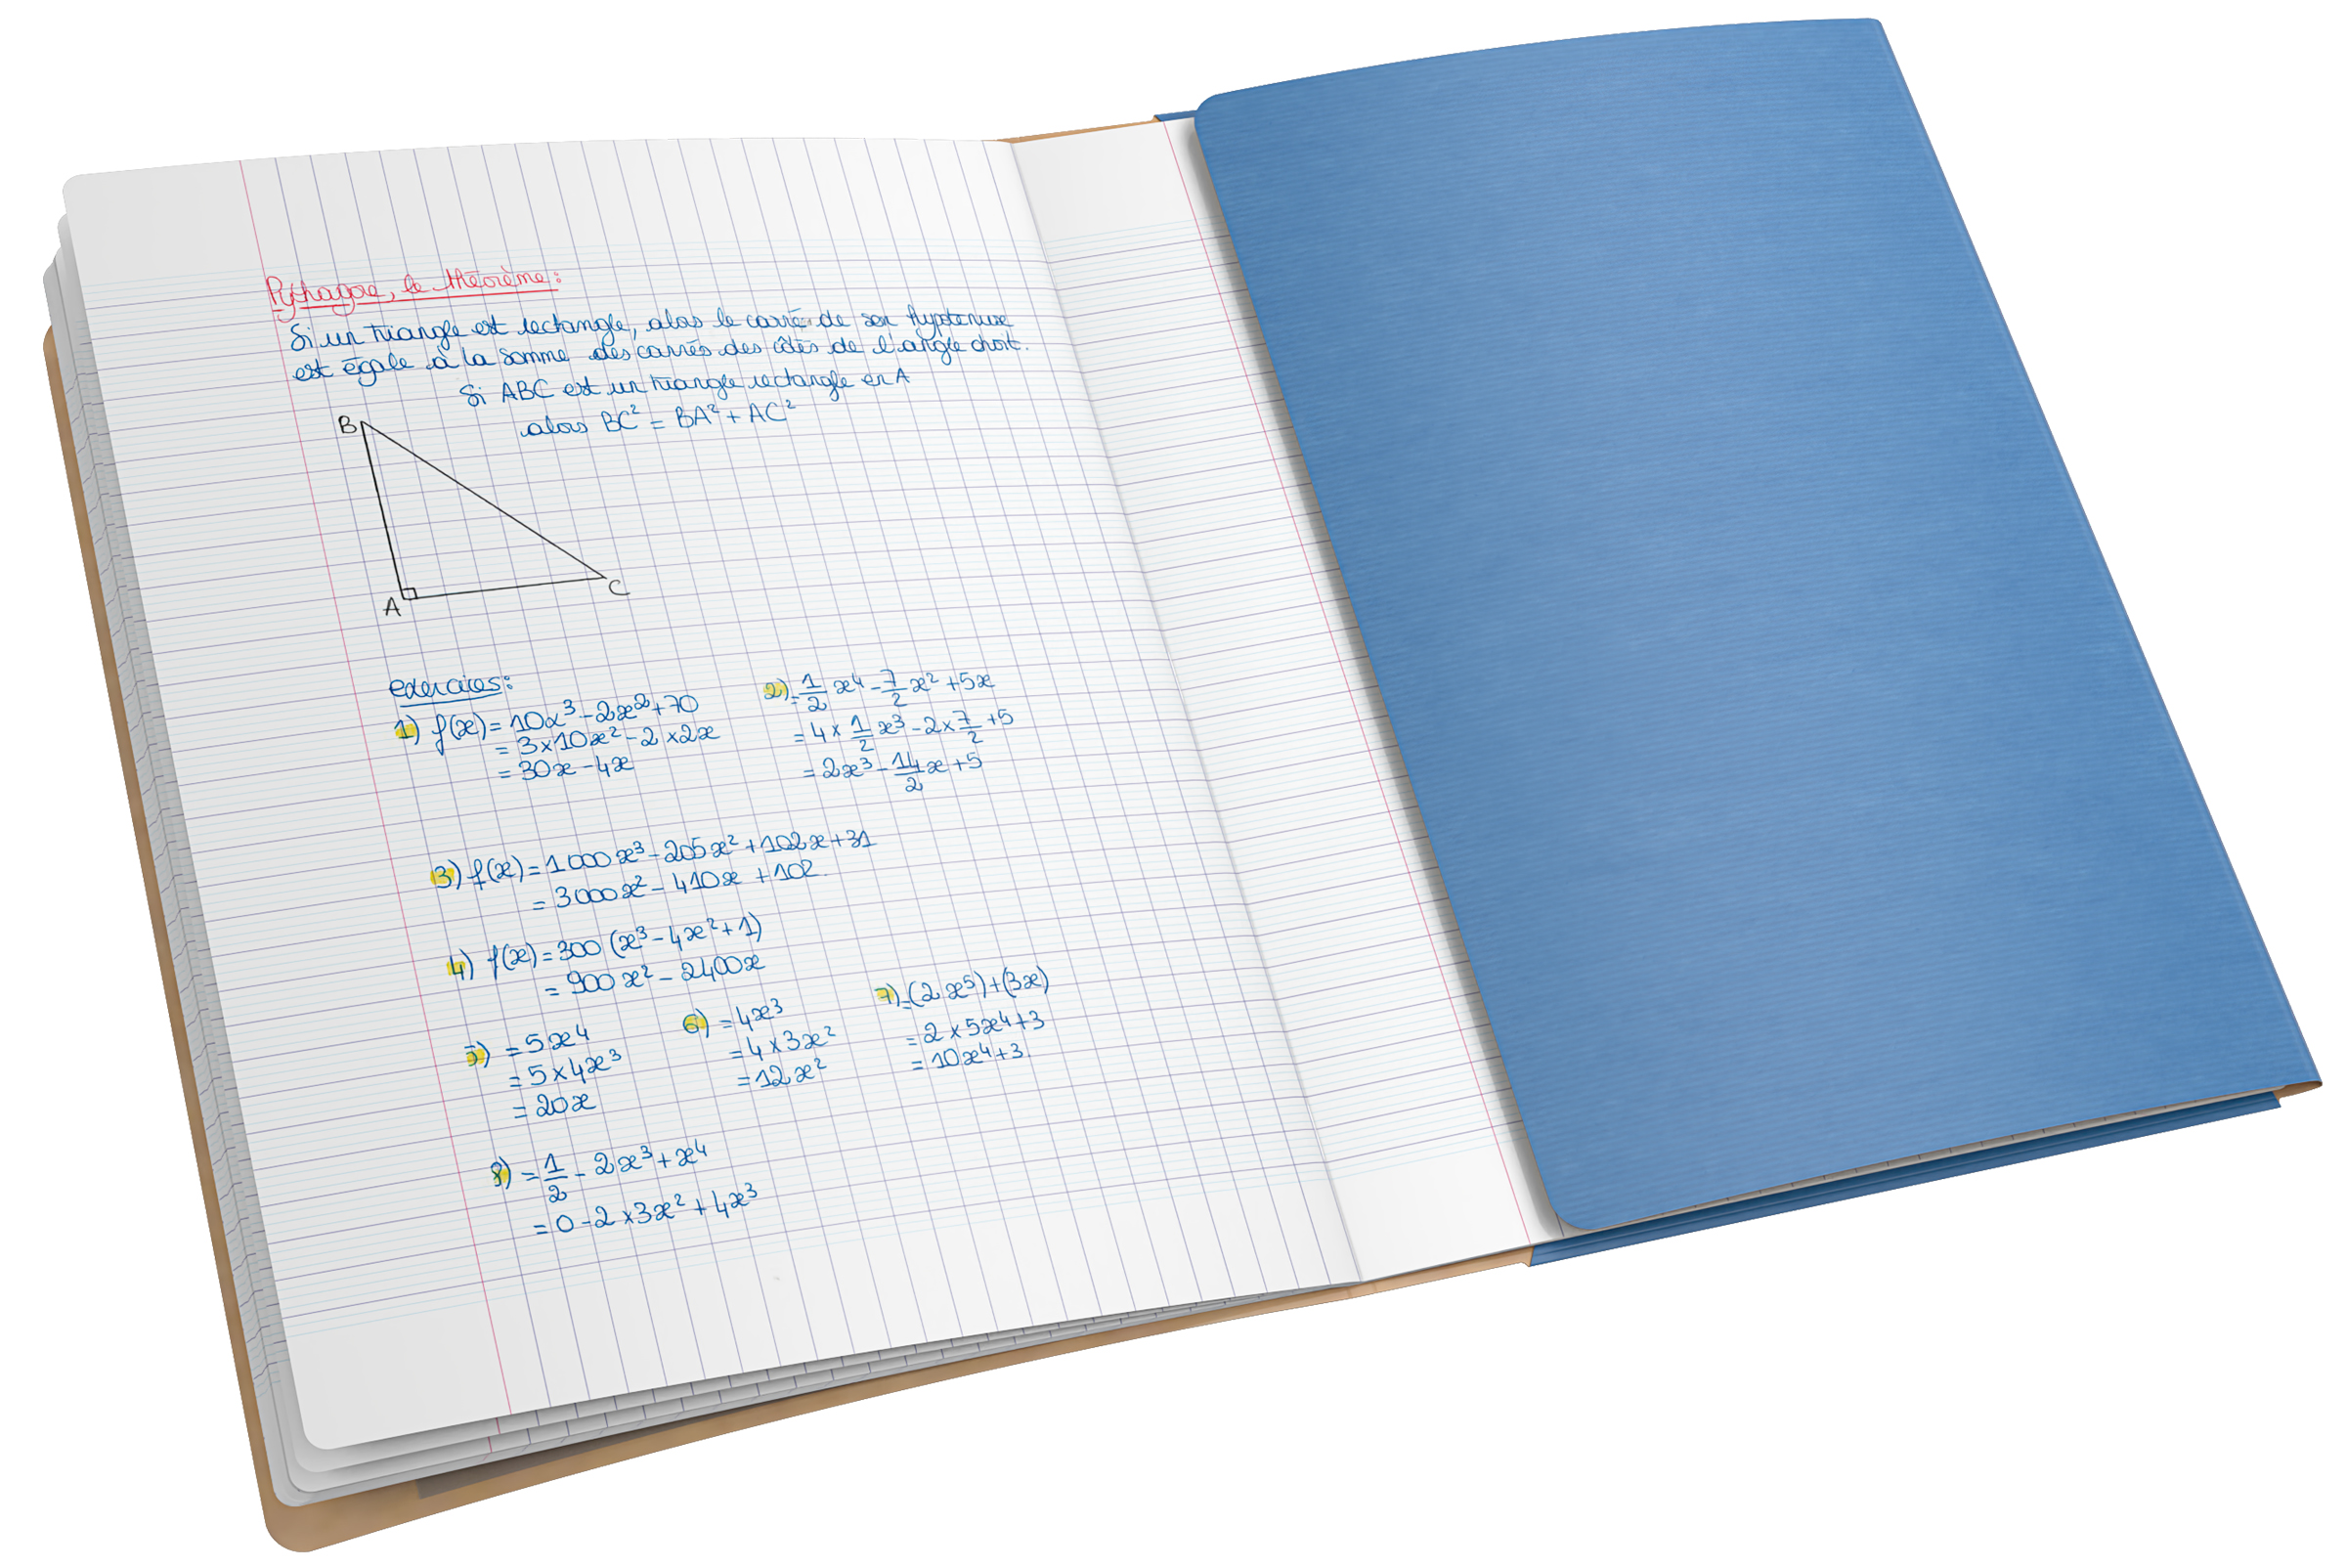 Pythagore, le théorème:
Si un triangle est rectangle, alors le carré de son hypotenuse
est égale à la somme des carrés des côtés de l'angle droit.
Si ABC est un triangle rectangle en A
alors BC² = BA² + AC²
B
A
C
exercices:
1) f(x) = 10x³ - 2x² + 70
= 3 × 10x² - 2 × 2x
= 30x - 4x
2) = 1/2 x⁴ - 7/2 x² + 5x
= 4 × 1/2 x³ - 2 × 7/2 + 5
= 2x³ - 14/2 x + 5
3) f(x) = 1000x³ - 205x² + 102x + 31
= 3000x² - 410x + 102.
4) f(x) = 300 (x³ - 4x² + 1)
= 900x² - 2400x
5) = 5x⁴
= 5 × 4x³
= 20x
6) = 4x³
= 4 × 3x²
= 12x²
7) = (2x⁵) + (3x)
= 2 × 5x⁴ + 3
= 10x⁴ + 3.
8) = 1/2 - 2x³ + x⁴
= 0 - 2 × 3x² + 4x³